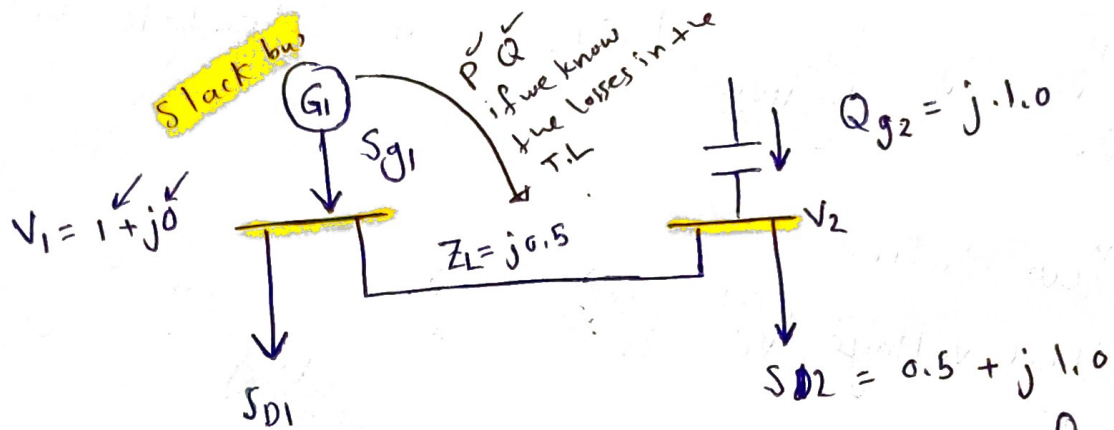 Slack bus
G1
P Q
if we know
the losses in the
T.L
Sg1
Qg2 = j.1.0
V1 = 1 + j0
V2
ZL = j0.5
SD1
SD2 = 0.5 + j 1.0